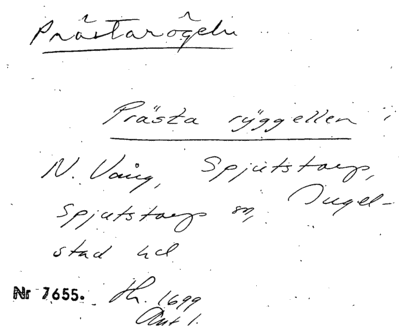 Prästarögeln
Prästa ryggellen i
N. Vång, Spjutstorp,
Spjutstorp sn, Ingel-
stad hd
Nr 7655. Hh. 1699
Akt 1.